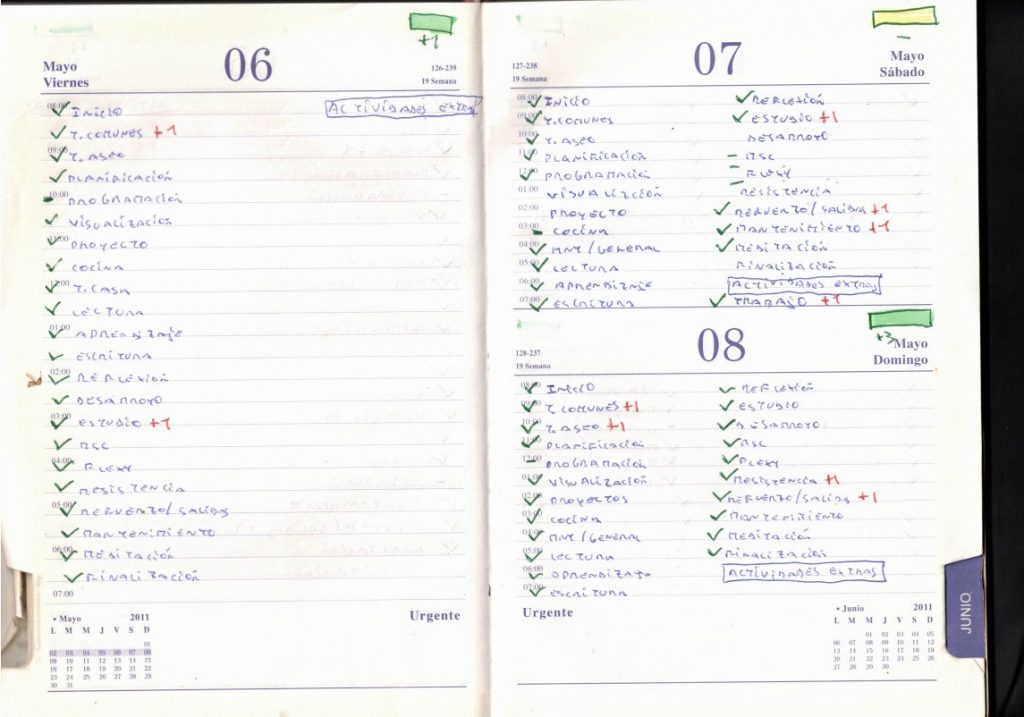 +1
06
Mayo
Viernes
126-239
19 Semana
08:00 INICIO
ACTIVIDADES EXTRAS
T. COMUNES +1
09:00 T. ASEO
PLANIFICACIÓN
10:00 PROGRAMACIÓN
VISUALIZACIÓN
11:00 PROYECTO
COCINA
12:00 T. CASA
LECTURA
01:00 APRENDIZAJE
ESCRITURA
02:00 REFLEXIÓN
DESARROYO
03:00 ESTUDIO +1
MSC
04:00 FLEXY
RESISTENCIA
05:00 REFUERZO/SALIDAS
MANTENIMIENTO
06:00 MEDITACIÓN
FINALIZACIÓN
07:00
Urgente
• Mayo 2011
L M M J V S D
01
02 03 04 05 06 07 08
09 10 11 12 13 14 15
16 17 18 19 20 21 22
23 24 25 26 27 28 29
30 31
–
07
127-238
19 Semana
Mayo
Sábado
08:00 INICIO
09:00 T. COMUNES
10:00 T. ASEO
11:00 PLANIFICACIÓN
12:00 PROGRAMACIÓN
01:00 VISUALIZCIÓN
02:00 PROYECTO
03:00 COCINA
04:00 MNT/GENERAL
05:00 LECTURA
06:00 APRENDIZAJE
07:00 ESCRITURA
REFLEXIÓN
ESTUDIO +1
DESARROYO
– MSC
– FLEXY
RESISTENCIA
REFUERZO/SALIDAS +1
MANTENIMIENTO +1
MEDITACIÓN
FINALIZACIÓN
ACTIVIDADES EXTRAS
TRABAJO +1
+3
08
128-237
19 Semana
Mayo
Domingo
08:00 INICIO
09:00 T. COMUNES +1
10:00 T. ASEO +1
11:00 PLANIFICACIÓN
12:00 PROGRAMACIÓN
01:00 VISUALIZACIÓN
02:00 PROYECTOS
03:00 COCINA
04:00 MNT/GENERAL
05:00 LECTURA
06:00 APRENDIZAJE
07:00 ESCRITURA
REFLEXIÓN
ESTUDIO
DESARROYO
MSC
FLEXY
RESISTENCIA +1
REFUERZO/SALIDAS +1
MANTENIMIENTO
MEDITACIÓN
FINALIZACIÓN
ACTIVIDADES EXTRAS
Urgente
• Junio 2011
L M M J V S D
01 02 03 04 05
06 07 08 09 10 11 12
13 14 15 16 17 18 19
20 21 22 23 24 25 26
27 28 29 30
JUNIO